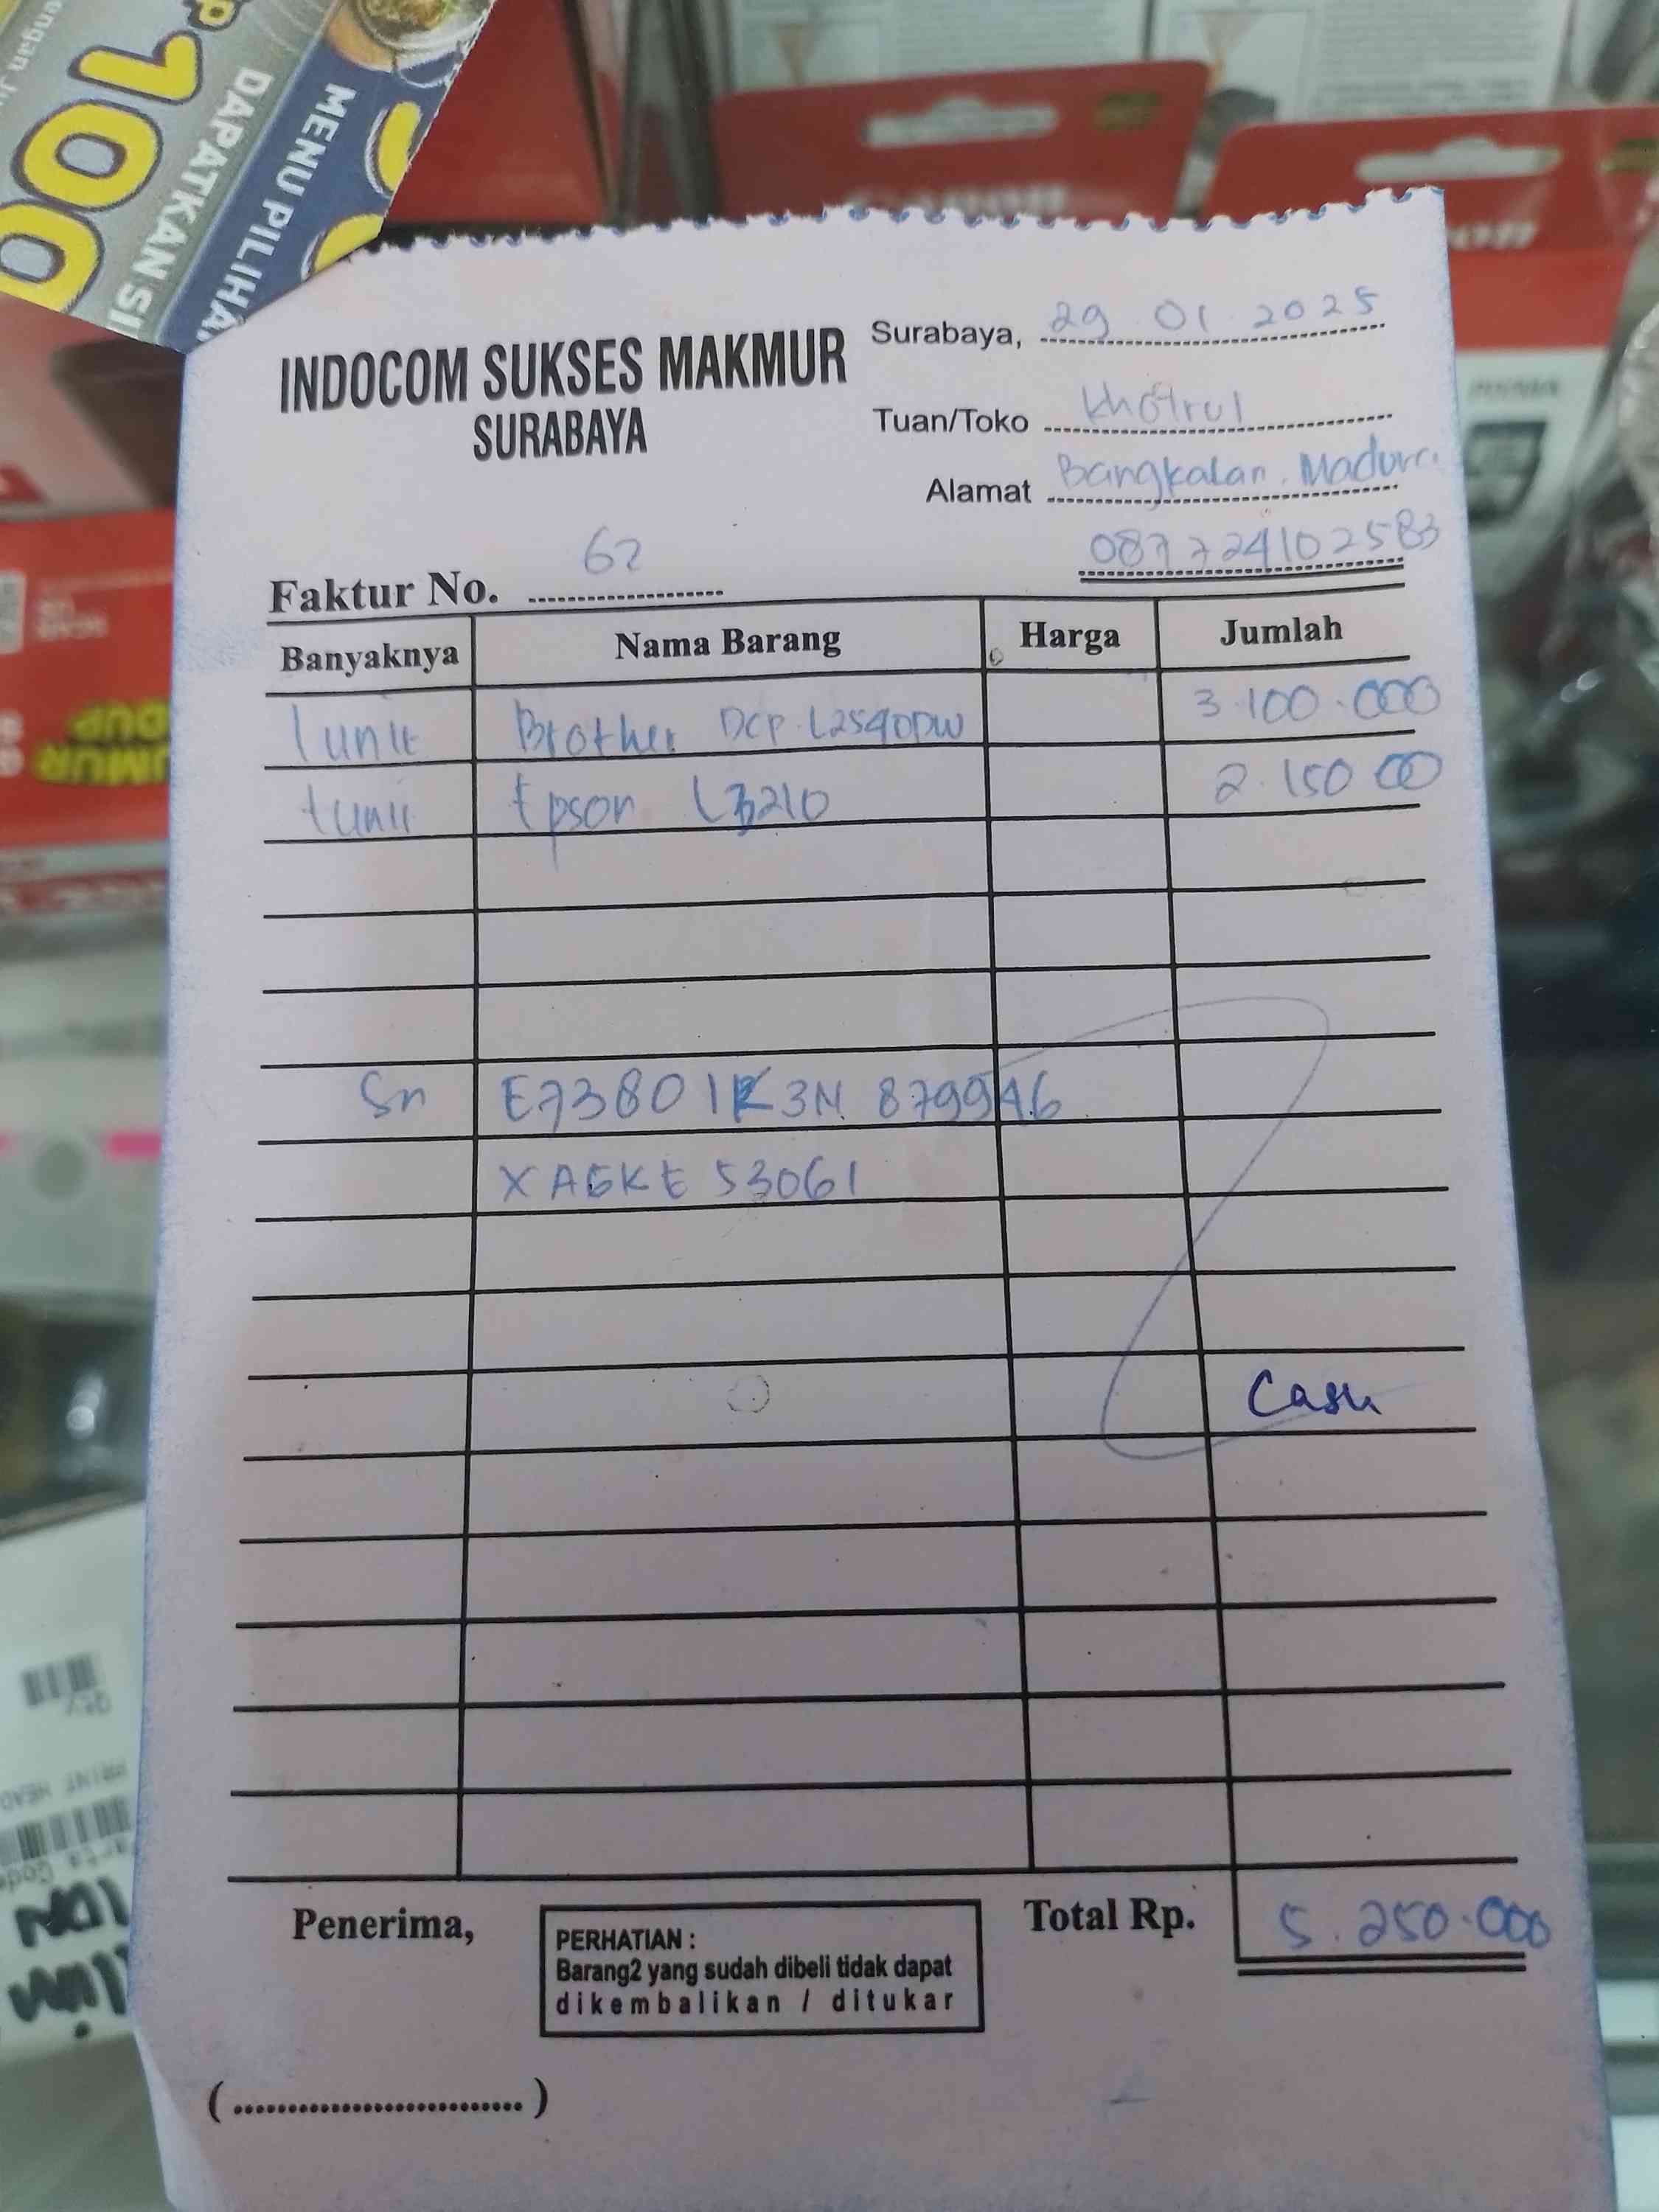 100
MENU PILIHA
DAPATKAN SI
INDOCOM SUKSES MAKMUR
SURABAYA
Surabaya, 29.01.2025
Tuan/Toko Khotrul
Alamat Bangkalan. Madura
087724102583
Faktur No. 62
Banyaknya Nama Barang Harga Jumlah
1 unit Brother DCP-L2540DW 3.100.000
1 unit Epson L3210 2.150 00
Sn E73801K3N 879946
XAGKE 53061
Cash
Penerima, Total Rp. 5.250.000
PERHATIAN :
Barang2 yang sudah dibeli tidak dapat
dikembalikan / ditukar
(.............................)
PRINT HEAD